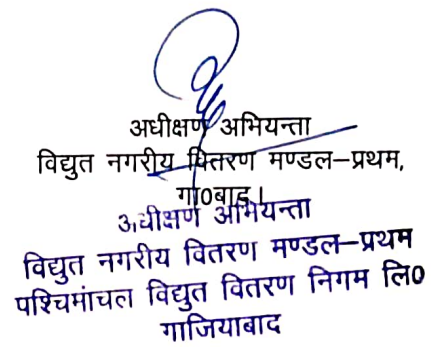 अधीक्षण अभियन्ता
विद्युत नगरीय वितरण मण्डल–प्रथम,
गा0बाद।
अधीक्षण अभियन्ता
विद्युत नगरीय वितरण मण्डल–प्रथम
पश्चिमांचल विद्युत वितरण निगम लि0
गाजियाबाद